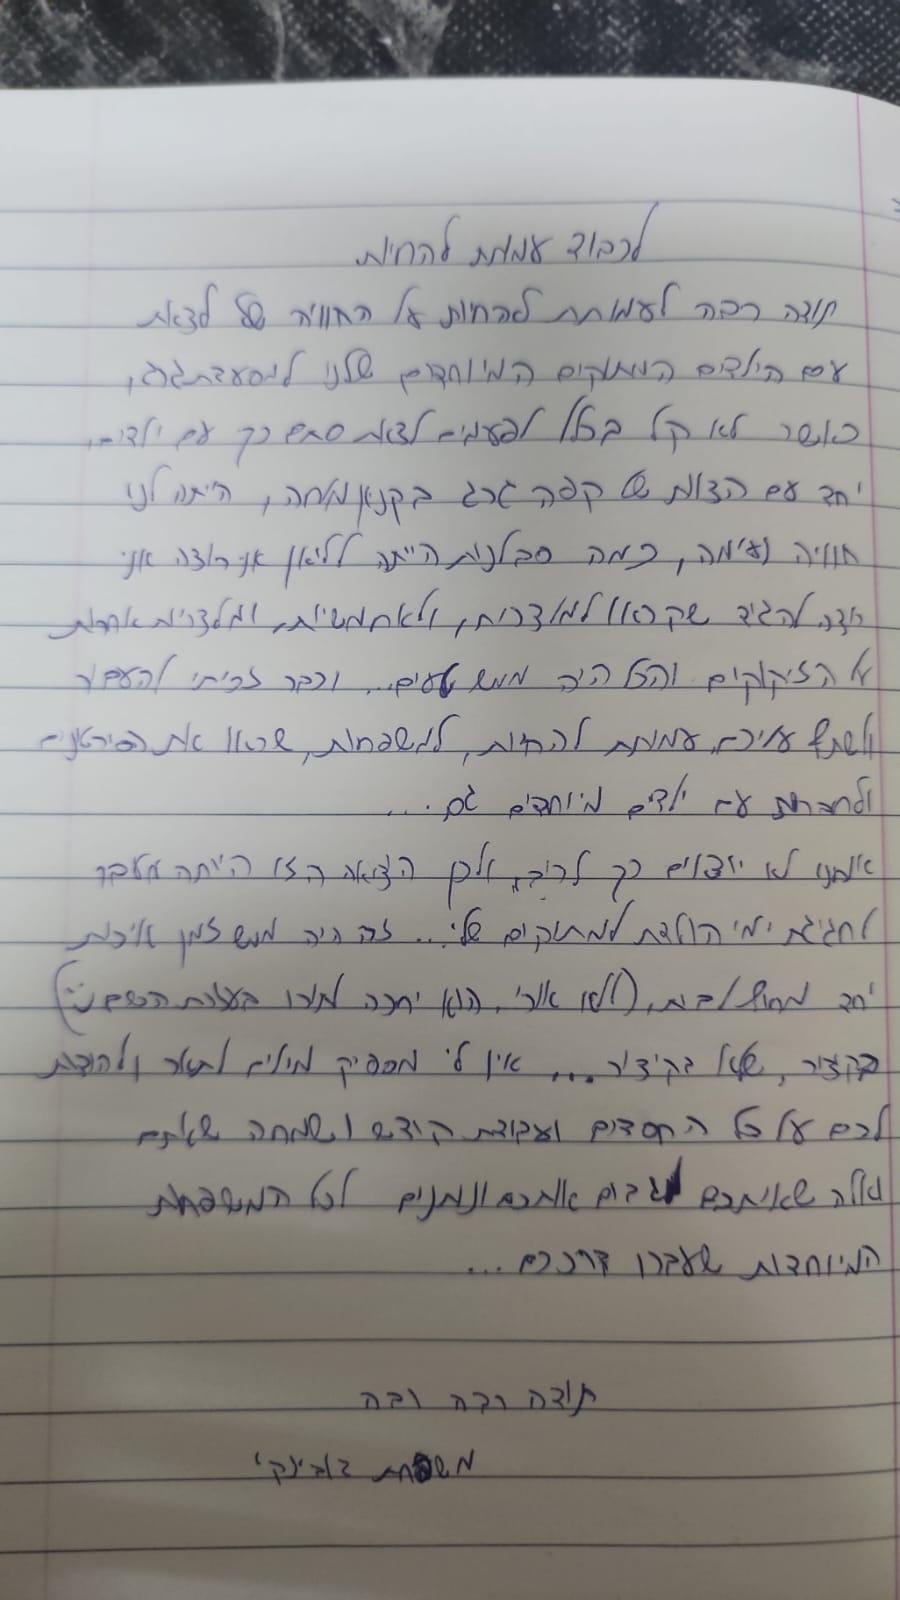 לכבוד עמותת להחיות
תודה רבה לעמותת להחיות על החוויה של לצאת
עם הילדים המתוקים המיוחדים שלנו למסעדת גרג,
כאשר לא קל בכלל לפעמים לצאת סתם כך עם ילדים,
יחד עם הצוות של קפה גרג בקניון, היתה לנו
חוויה נעימה, כמה סבלנות הייתה לליאון אני רוצה אני
רוצה להגיד שקראו למלצרית, ולאחמשיות, ומלצריות אחרות
על הזיקוקים והכל היה ממש טעים... וכבר זכיתי להעביר
ולשתף עליכם, עמותת להחיות, למשפחות, שראו את הסירטונים
ולחברות עם ילדים מיוחדים גם ...
אנחנו לא יוצאים כך לרוב, ולכן הציאה הזו הייתה מעבר
לחגיגת ימי הולדת למתוקים שלי... זה היה ממש זמן איכות
יחד מחוץ לבית, (ללא אורי, הוא יחכה לתורו בעזרת השם)
בקציר, שלא בקיציר ... אין לי מספיק מילים לתאר ולהודות
לכם על כל החסדים ועבודת קודש ושמחה שאתם
ואלה שאיתכם אתכם ונותנים לכל המשפחות
המיוחדות שעברו דרככם ...
תודה רבה רבה
משפחת